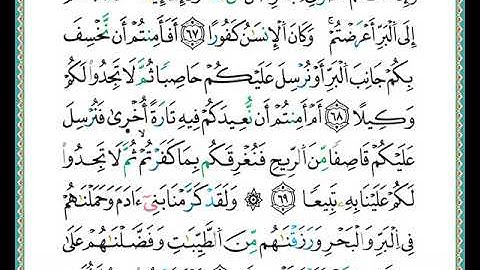 إِلَى ٱلْبَرِّ أَعْرَضْتُمْۚ وَكَانَ ٱلْإِنسَٰنُ كَفُورًا ٦٧ أَفَأَمِنتُمْ أَن نَّخْسِفَ
بِكُمْ جَانِبَ ٱلْبَرِّ أَوْ نُرْسِلَ عَلَيْكُمْ حَاصِبًا ثُمَّ لَا تَجِدُوا۟ لَكُمْ
وَكِيلًا ٦٨ أَمْ أَمِنتُمْ أَن نُّعِيدَكُمْ فِيهِ تَارَةً أُخْرَىٰ فَنُرْسِلَ
عَلَيْكُمْ قَاصِفًا مِّنَ ٱلرِّيحِ فَنُغْرِقَكُم بِمَا كَفَرْتُمْ ثُمَّ لَا تَجِدُوا۟
لَكُمْ عَلَيْنَا بِهِۦ تَبِيعًا ٦٩ ۞ وَلَقَدْ كَرَّمْنَا بَنِىٓ ءَادَمَ وَحَمَلْنَٰهُمْ
فِى ٱلْبَرِّ وَٱلْبَحْرِ وَرَزَقْنَٰهُم مِّنَ ٱلطَّيِّبَٰتِ وَفَضَّلْنَٰهُمْ عَلَىٰ